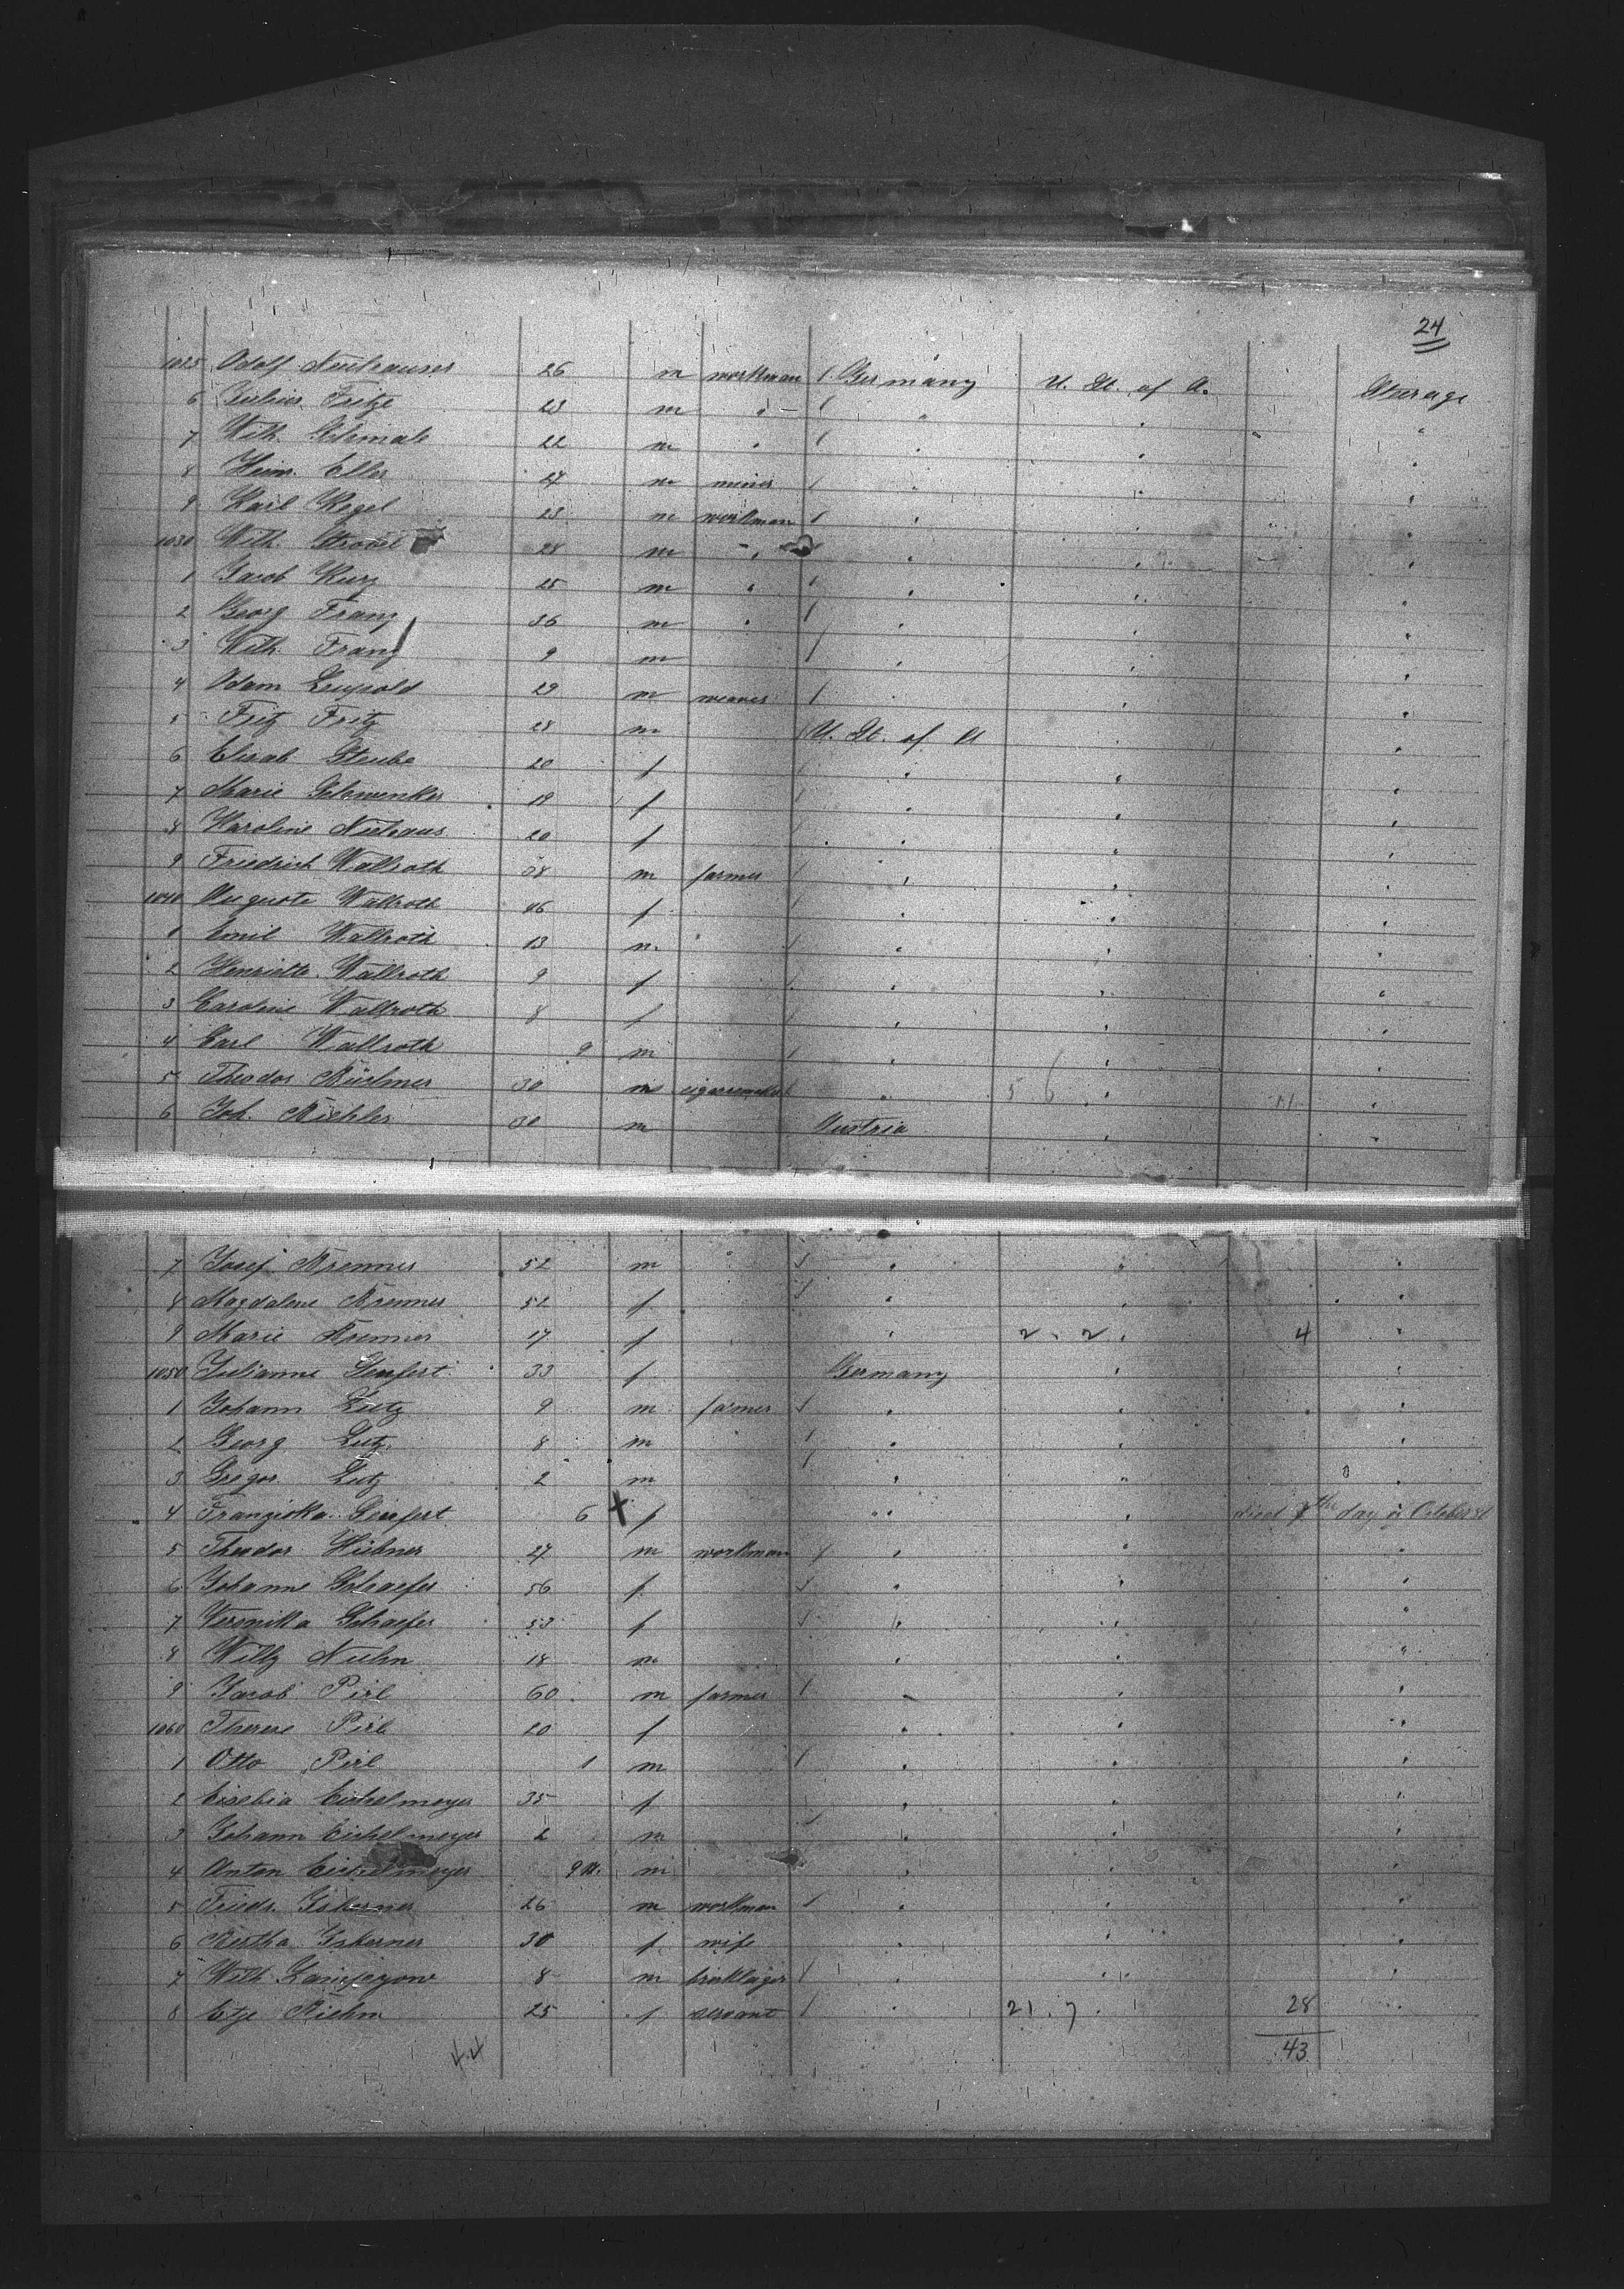 24
1025 Adolf Neuhauser 26 m workman / Germany U. St. of A. Steerage
6 Julius Fritze 23 m " / " " "
7 Wilh. 22 m " / " " "
8 Heinr. Eller 27 m miner / " " "
9 Karl Kegel 23 m workman / " " "
1030 Wilh. Strobel 28 m " " " "
1 Jacob Kurz 25 m " / " " "
2 Georg Franz 36 m " / " " "
3 Wilh. Franz 9 m / " " "
4 Adam Leupold 29 m weaver / " " "
5 Fritz Fritz 28 m / U. St. of A " "
6 Elisab Steube 20 f / " " "
7 Marie 19 f / " " "
8 Karoline Niehaus 20 f / " " "
9 Friedrich Wallroth 38 m farmer / " " "
1040 Auguste Wallroth 46 f / " " "
1 Emil Wallroth 13 m / " " "
2 Henriette Wallroth 9 f / " " "
3 Caroline Wallroth 8 f / " " "
4 Carl Wallroth 9 m / " " "
5 Theodor 30 m " 5 6 " 11 "
6 Joh. Richter 30 m Austria " "
7 Josef Brenner 52 m / " " "
8 Magdalene Brenner 52 f / " " "
9 Marie Brenner 17 f " 2 . 2 " 4 "
1050 Julianne Seufert 33 f Germany " "
1 Johann Lutz 9 m farmer / " " "
2 Georg Lutz 8 m / " " "
3 Gregor Lutz 2 m / " " "
4 Franziska Seufert 6 X f " " died th day of October
5 Theodor Hübner 27 m workman / " " "
6 Johanne Schaefer 56 f / " " "
7 Veronika Schaefer 53 f / " " "
8 Willy Nuhn 18 m " " "
9 Jacob Pirl 60 m farmer / " " "
1060 Therese Pirl 20 f " " "
1 Otto Pirl 1 m / " " "
2 Eichelmeyer 35 f " " "
3 Johann Eichelmeyer 2 m / " " "
4 Anton Eichelmeyer 9 M. m " " "
5 Friedr. 26 m workman / " " "
6 Bertha 30 f wife " " "
7 Wilh. 8 m bricklayer / " " "
8 Etje Riehm 25 f servant / " 21 . 7 . 28 "
44 43